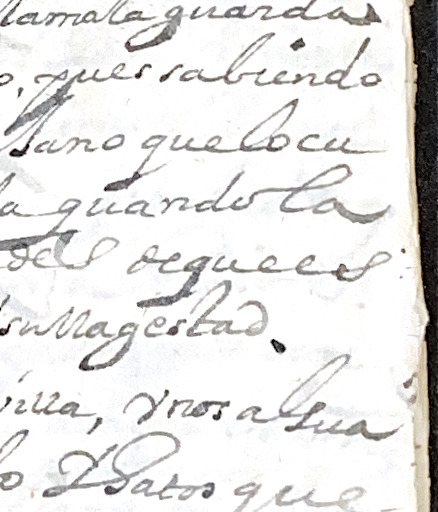 la mala guarda
o, pues sabiendo
sano que lo cu
la guando la
des de que es
su Magestad,
villa, y nos a lua
lo y datos que